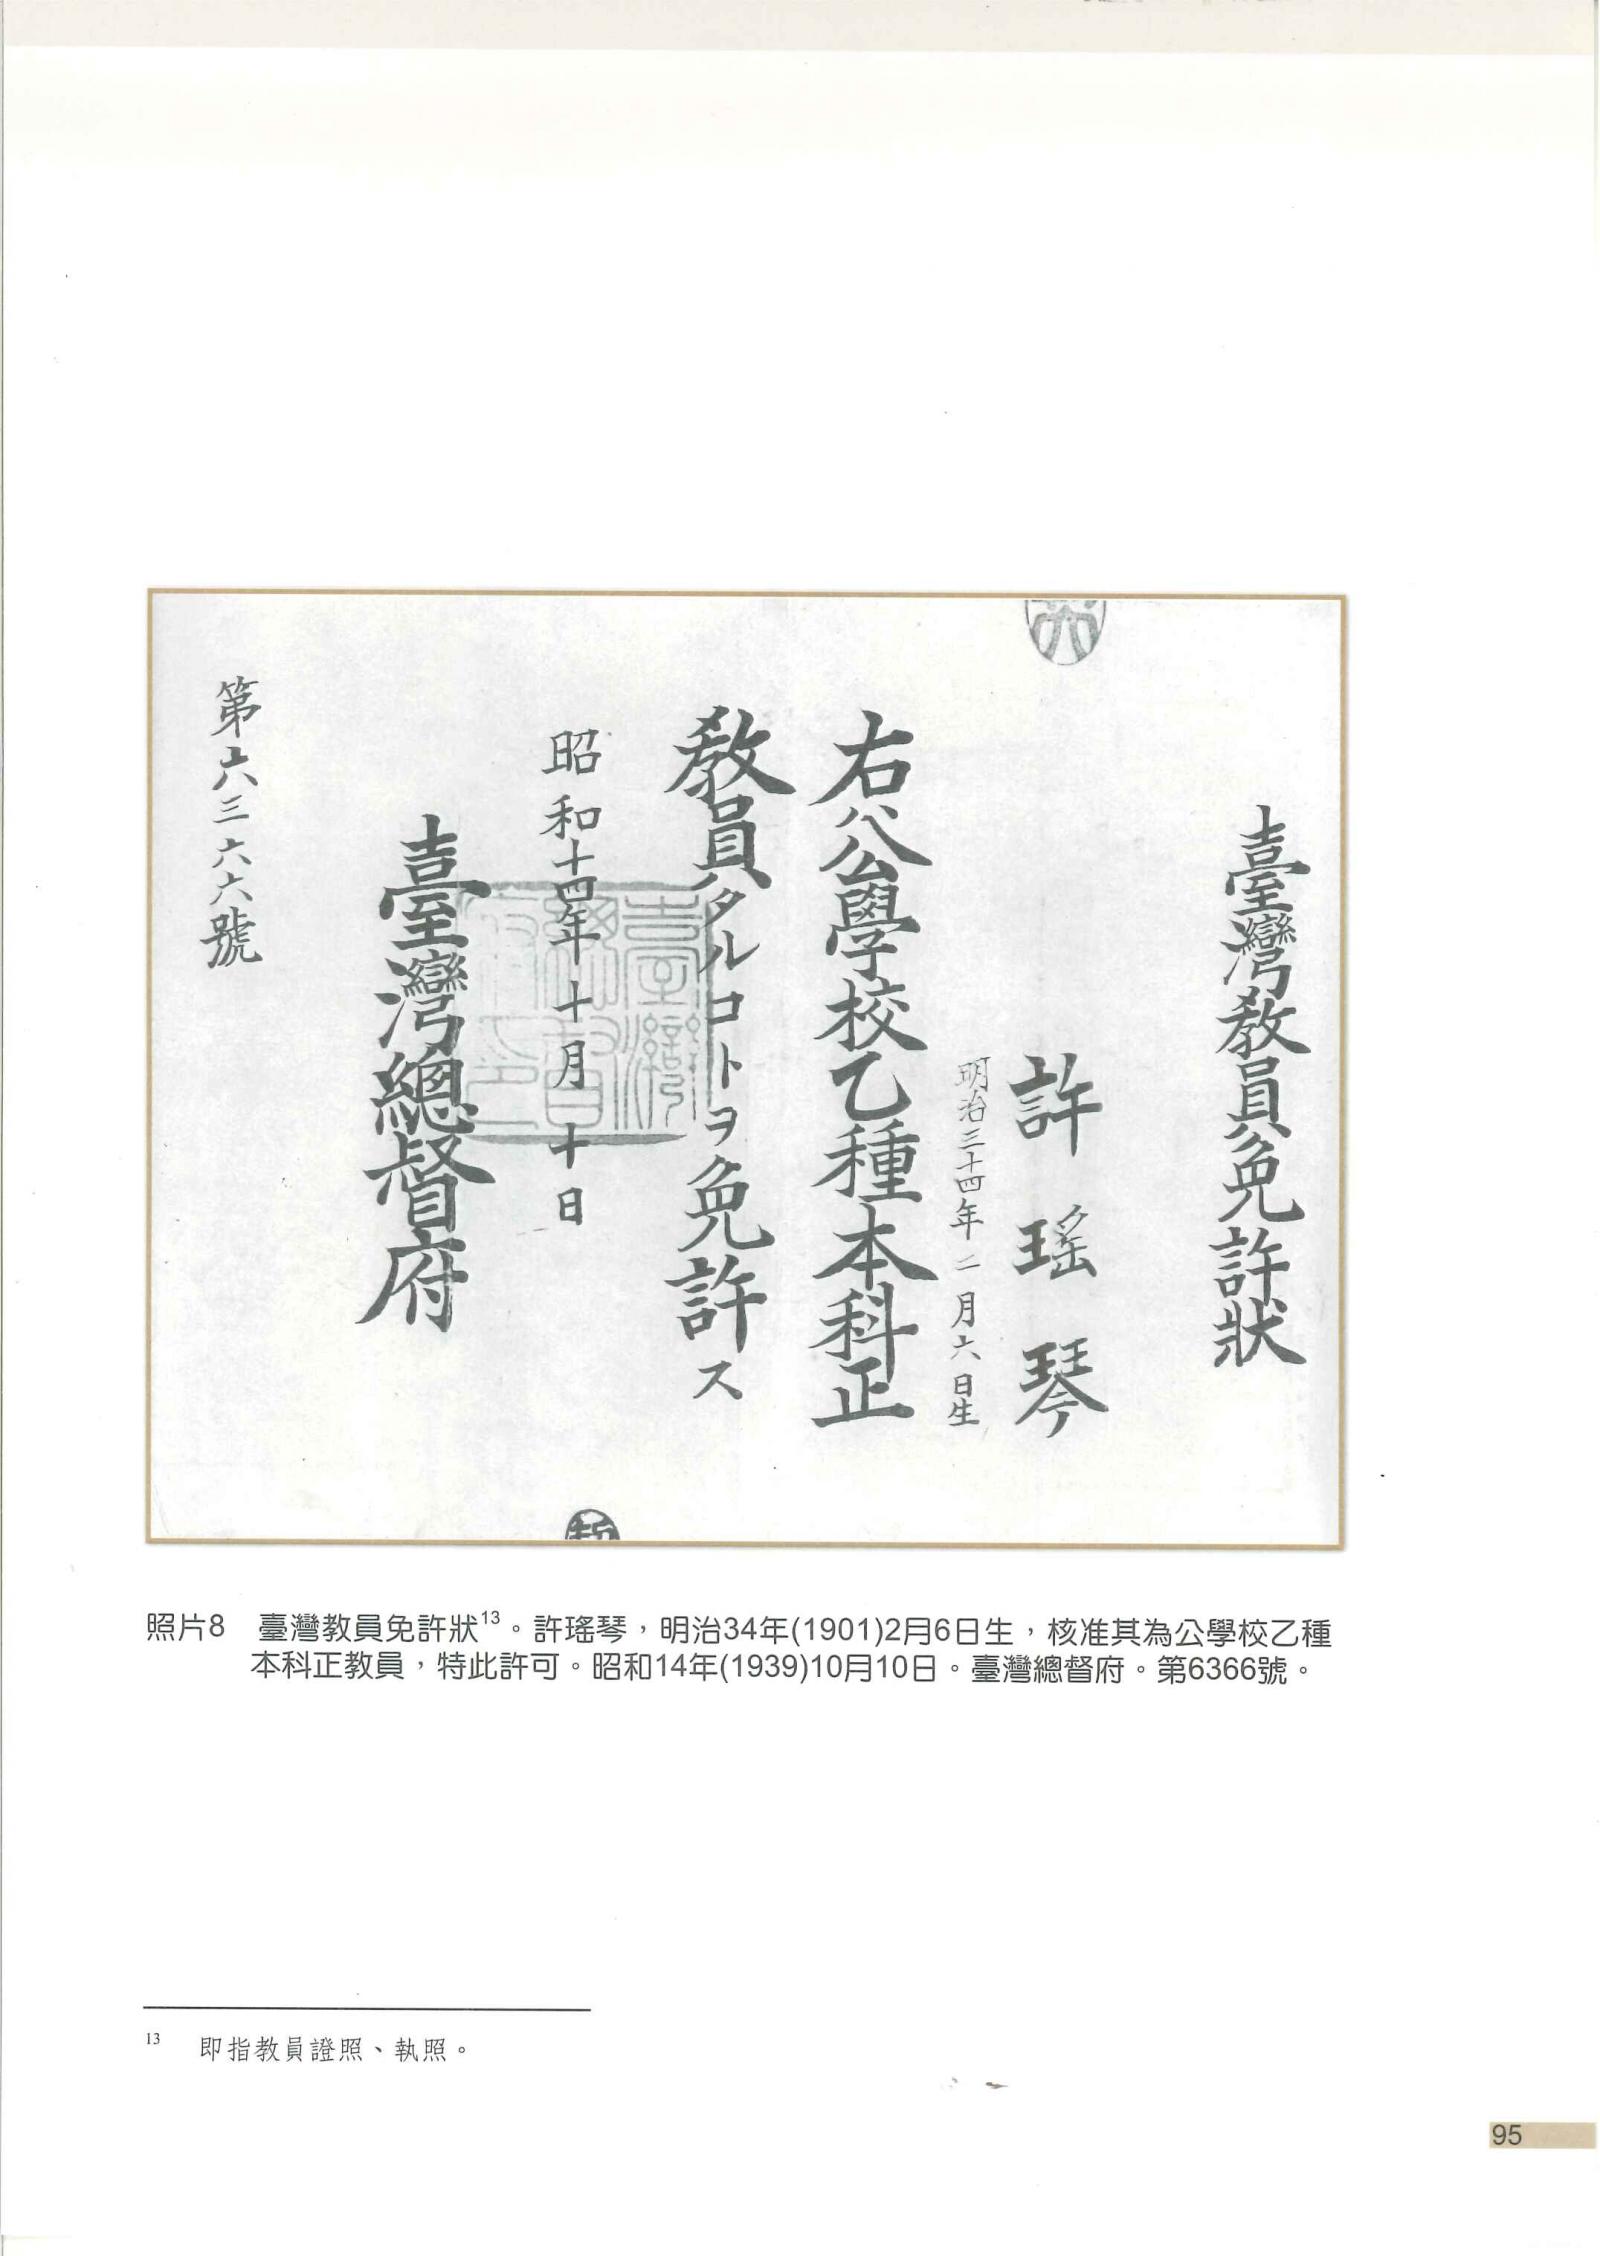 臺灣教員免許狀
許瑤琴
明治三十四年二月六日生
右ハ公學校乙種本科正
教員タルコトヲ免許ス
昭和十四年十月十日
臺灣總督府
第六三六六號
臺灣總督府印
照片8 臺灣教員免許狀13。許瑤琴,明治34年(1901)2月6日生,核准其為公學校乙種
本科正教員,特此許可。昭和14年(1939)10月10日。臺灣總督府。第6366號。
13 即指教員證照、執照。
95